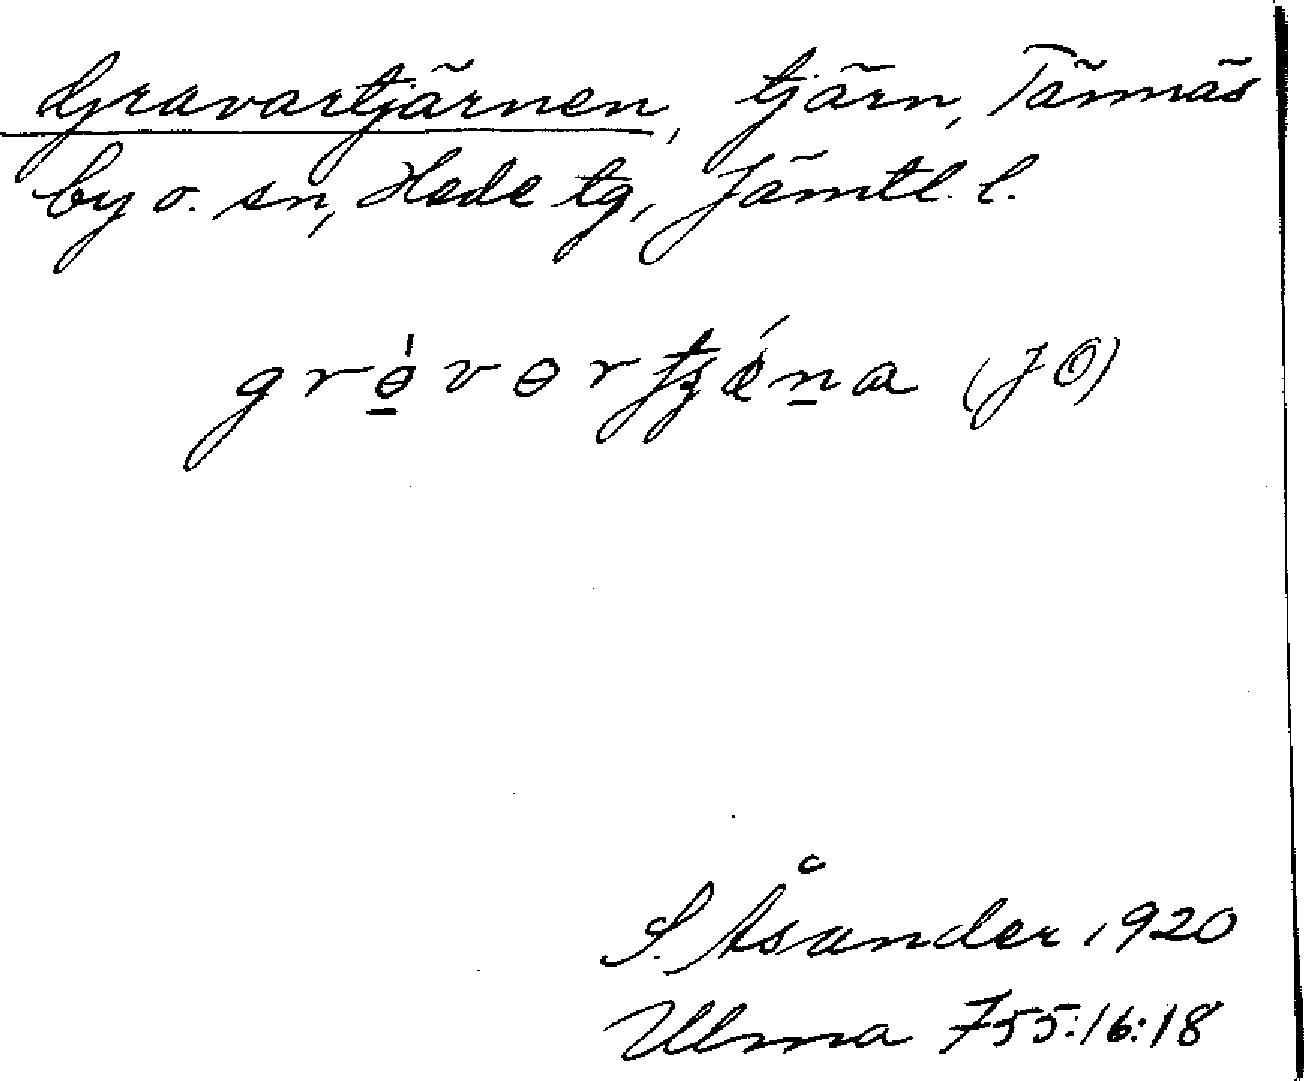 Gravartjärnen, tjärn, Tännäs
by o. sn, Hede tg, Jämtl. l.
(JO)
S. Åsander 1920
Ulma 755:16:18